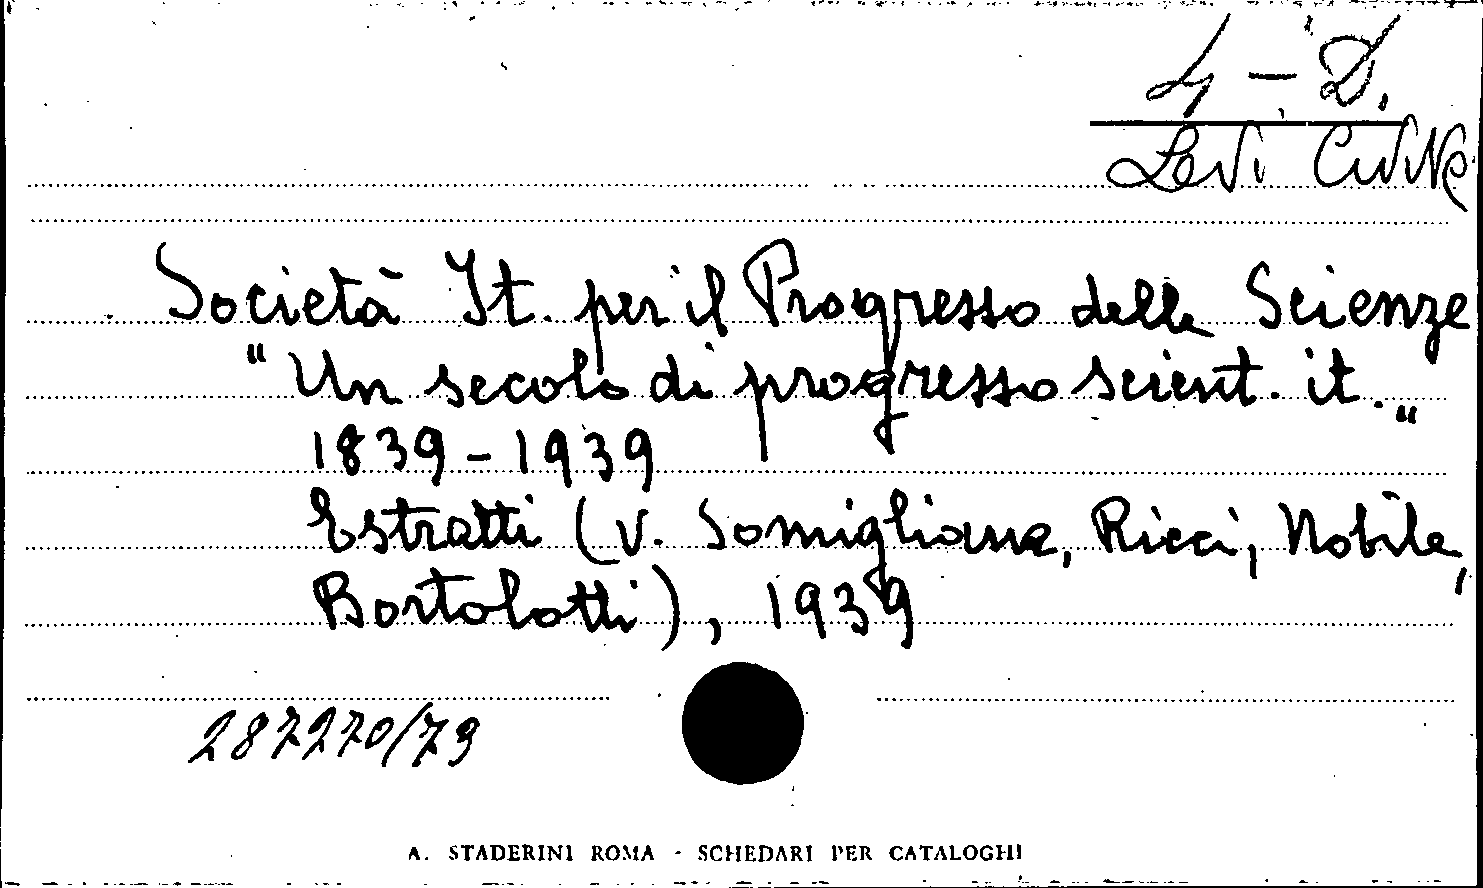 4 - D.
Levi Civita
Società It. per il Progresso delle Scienze
"Un secolo di progresso scient. it."
1839 - 1939
Estratti (v. Somigliana, Ricci, Nobile,
Bortolotti), 1939
287270/73
A. STADERINI ROMA - SCHEDARI PER CATALOGHI